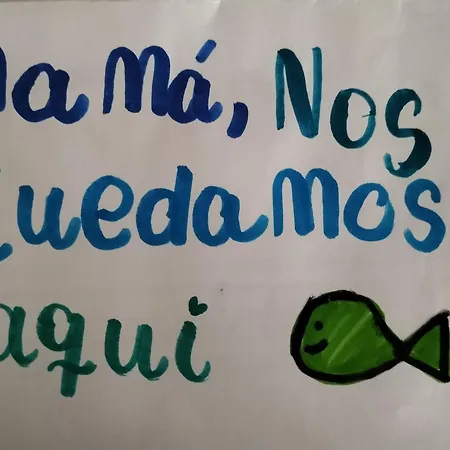 Mamá, Nos
Quedamos
aqui